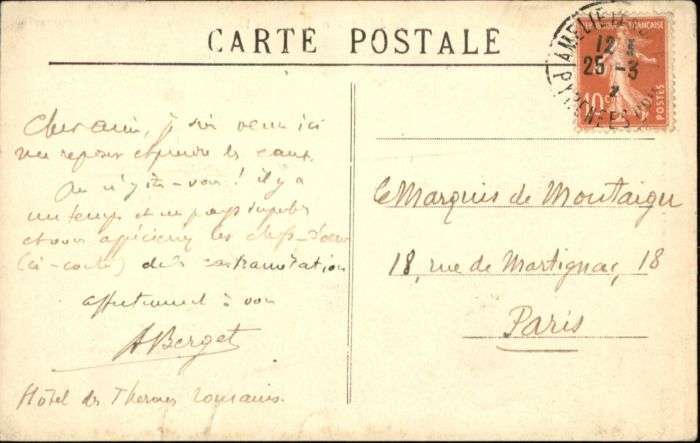 CARTE POSTALE
AMELIE
PYRENEES
12
25 - 3
10c
POSTES
FRANÇAISE
Cher ami, je suis venu ici
me reposer et prendre les eaux.
On n'y êtes-vous! il y a
un temps et un pays superbes
et vous apprécieriez les chefs-d'œuvre
(ci-contre) de la
affectueusement à vous
ABerget
Hôtel des Thermes romains.
le Marquis de Montaigu
18, rue de Martignac, 18
Paris